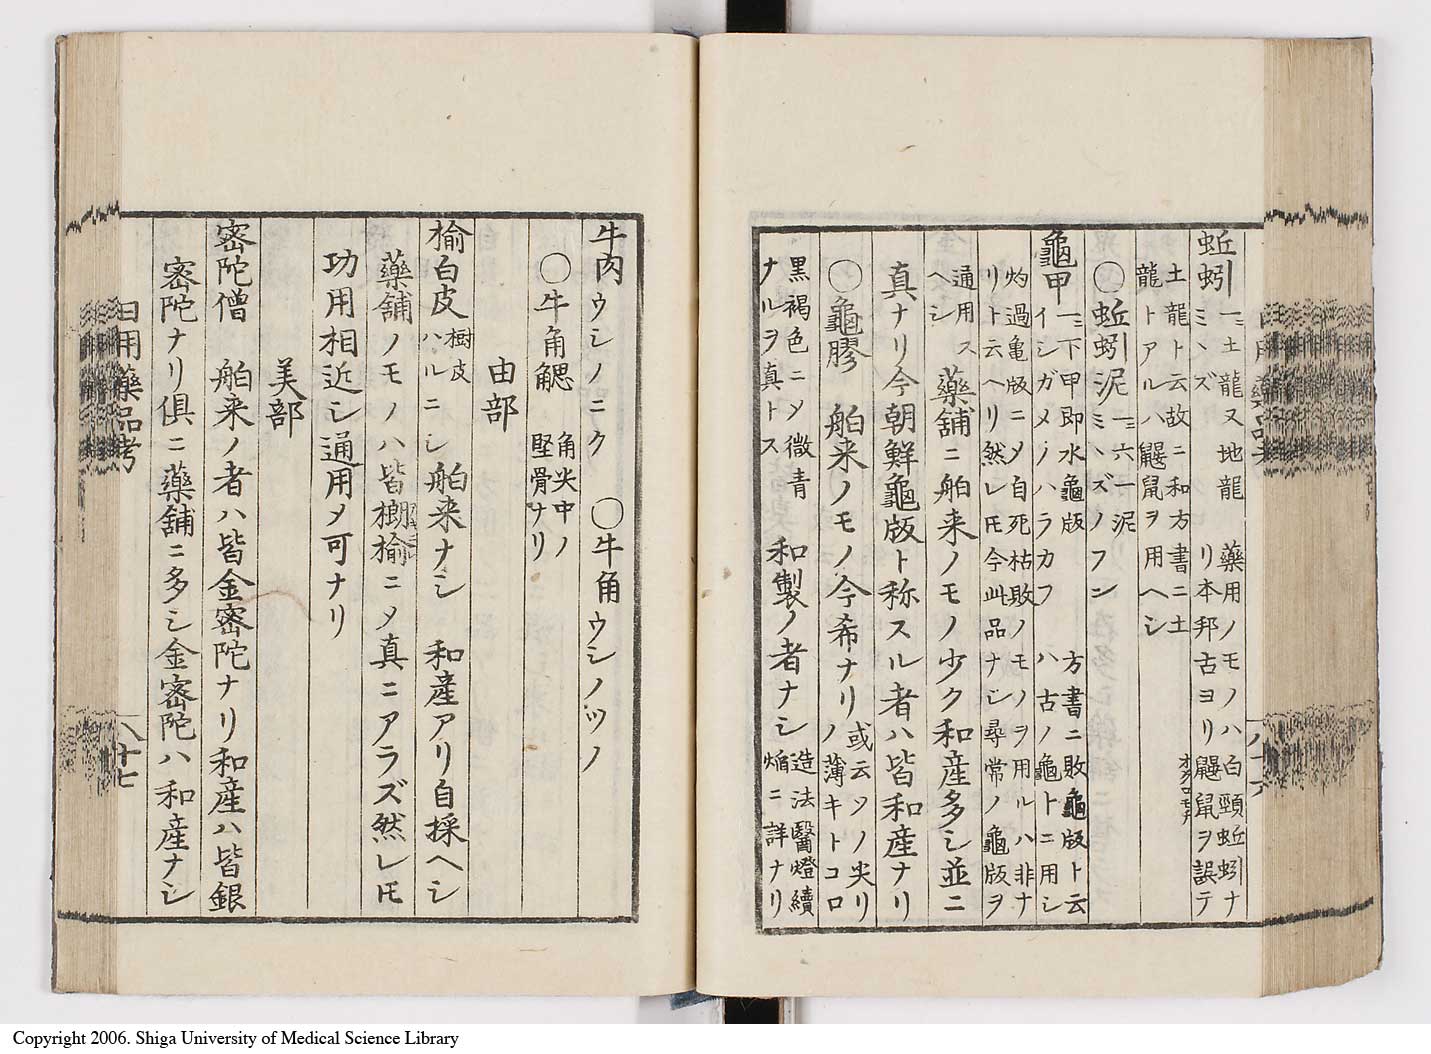 蚯蚓 一ニ土龍又地龍 ミヽズ 藥用ノモノハ白頸蚯蚓ナリ本邦古ヨリ鼴鼠ヲ誤テ
土龍ト云故ニ和方書ニ土龍トアルハ鼴鼠ヲ用ヘシ
〇蚯蚓泥 一ニ六一泥 ミヽズノフン
龜甲 一ニ下甲即水龜版 イシガメノハラカフ 方書ニ敗龜版ト云ハ古ノ龜トニ用シ
灼過亀版ニ〆自死枯敗ノモノヲ用ルハ非ナリト云ヘリ然レ𪜈今此品ナシ尋常ノ龜版ヲ
通用スヘシ 藥舗ニ舶来ノモノ少ク和産多シ並ニ
真ナリ今朝鮮龜版ト称スル者ハ皆和産ナリ
〇龜膠 舶来ノモノ今希ナリ 或云ツノ尖リノ薄キトコロ
黒褐色ニ〆微青ナルヲ真トス 和製ノ者ナシ 造法醫燈續焔ニ詳ナリ
日用藥品考
八十六
牛肉 ウシノニク 〇牛角 ウシノツノ
〇牛角䚡 角尖中ノ堅骨ナリ
由部
楡白皮 樹皮ハルニシ 舶来ナシ 和産アリ自採ヘシ
藥舗ノモノハ皆榔楡ニ〆真ニアラズ然レ𪜈
功用相近シ通用〆可ナリ
美部
密陀僧 舶来ノ者ハ皆金密陀ナリ和産ハ皆銀
密陀ナリ俱ニ藥舗ニ多シ金密陀ハ和産ナシ
日用藥品考
八十七
Copyright 2006. Shiga University of Medical Science Library